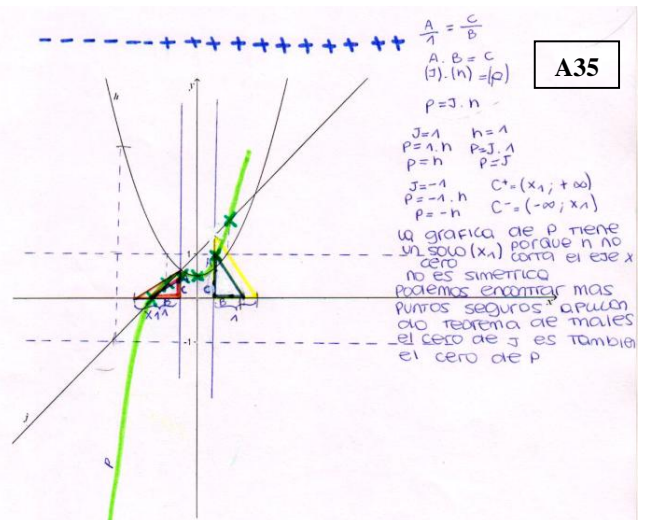 - - - - - - + + + + + + + + + + +
A/1 = C/B
A35
A. B = C
(J).(h) = (p)
P=J.h
J=1 h=1
P=1.h P=J.1
P=h P=J
J=-1 C+=(x1; +∞)
P=-1.h C-=(-∞; x1)
P=-h
la grafica de P tiene
un solo (x1) porque h no
cero corta el eje x
no es simetrica
Podemos encontrar mas
puntos seguros aplican
do teorema de males
el cero de J es tambien
el cero de P
h
y
1
x
B
C
C
B
1
x1
1
-1
j
P